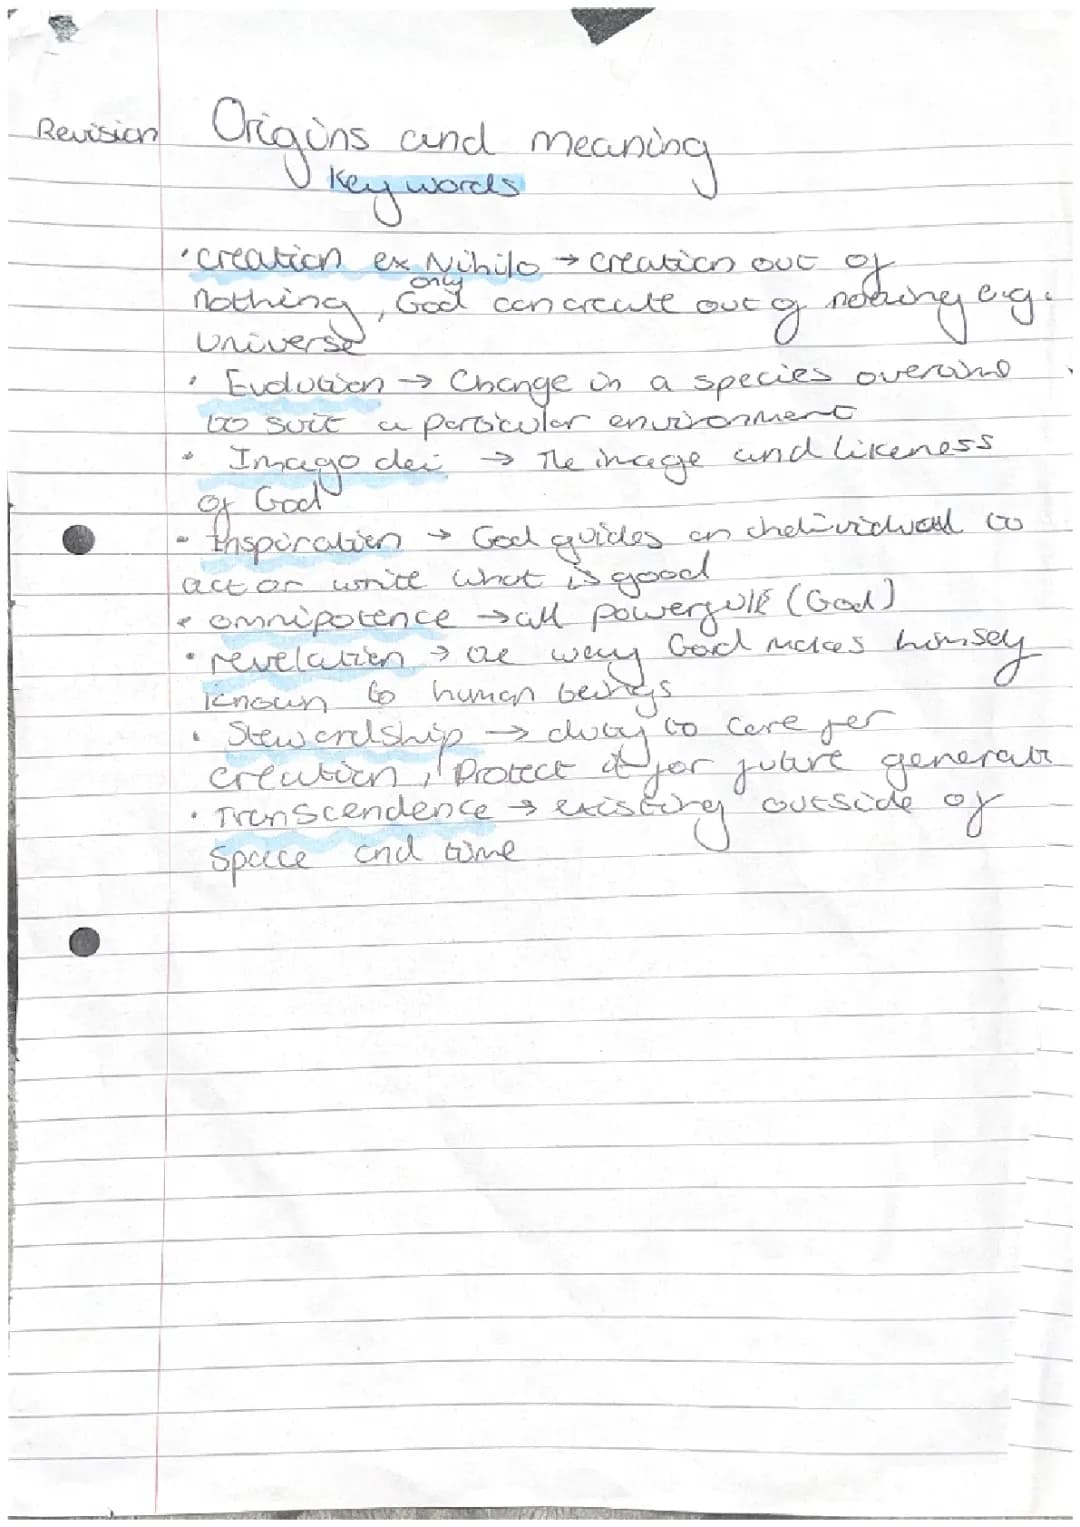 Revision
Origins and meaning
Key words
• creation ex Nihilo → creation out of
nothing, only God can create out of nothing e.g.
Universe
• Evolution → Change in a species overtime
to suit a particular environment
• Imago dei → The image and likeness
of God
• Inspiration → God guides an individual to
act or write what is good
• omnipotence → all powerful (God)
• revelation → the way God makes himself
known to human beings
• Stewardship → duty to care for
creation, Protect it for future generati
• Transcendence → existing outside of
space and time